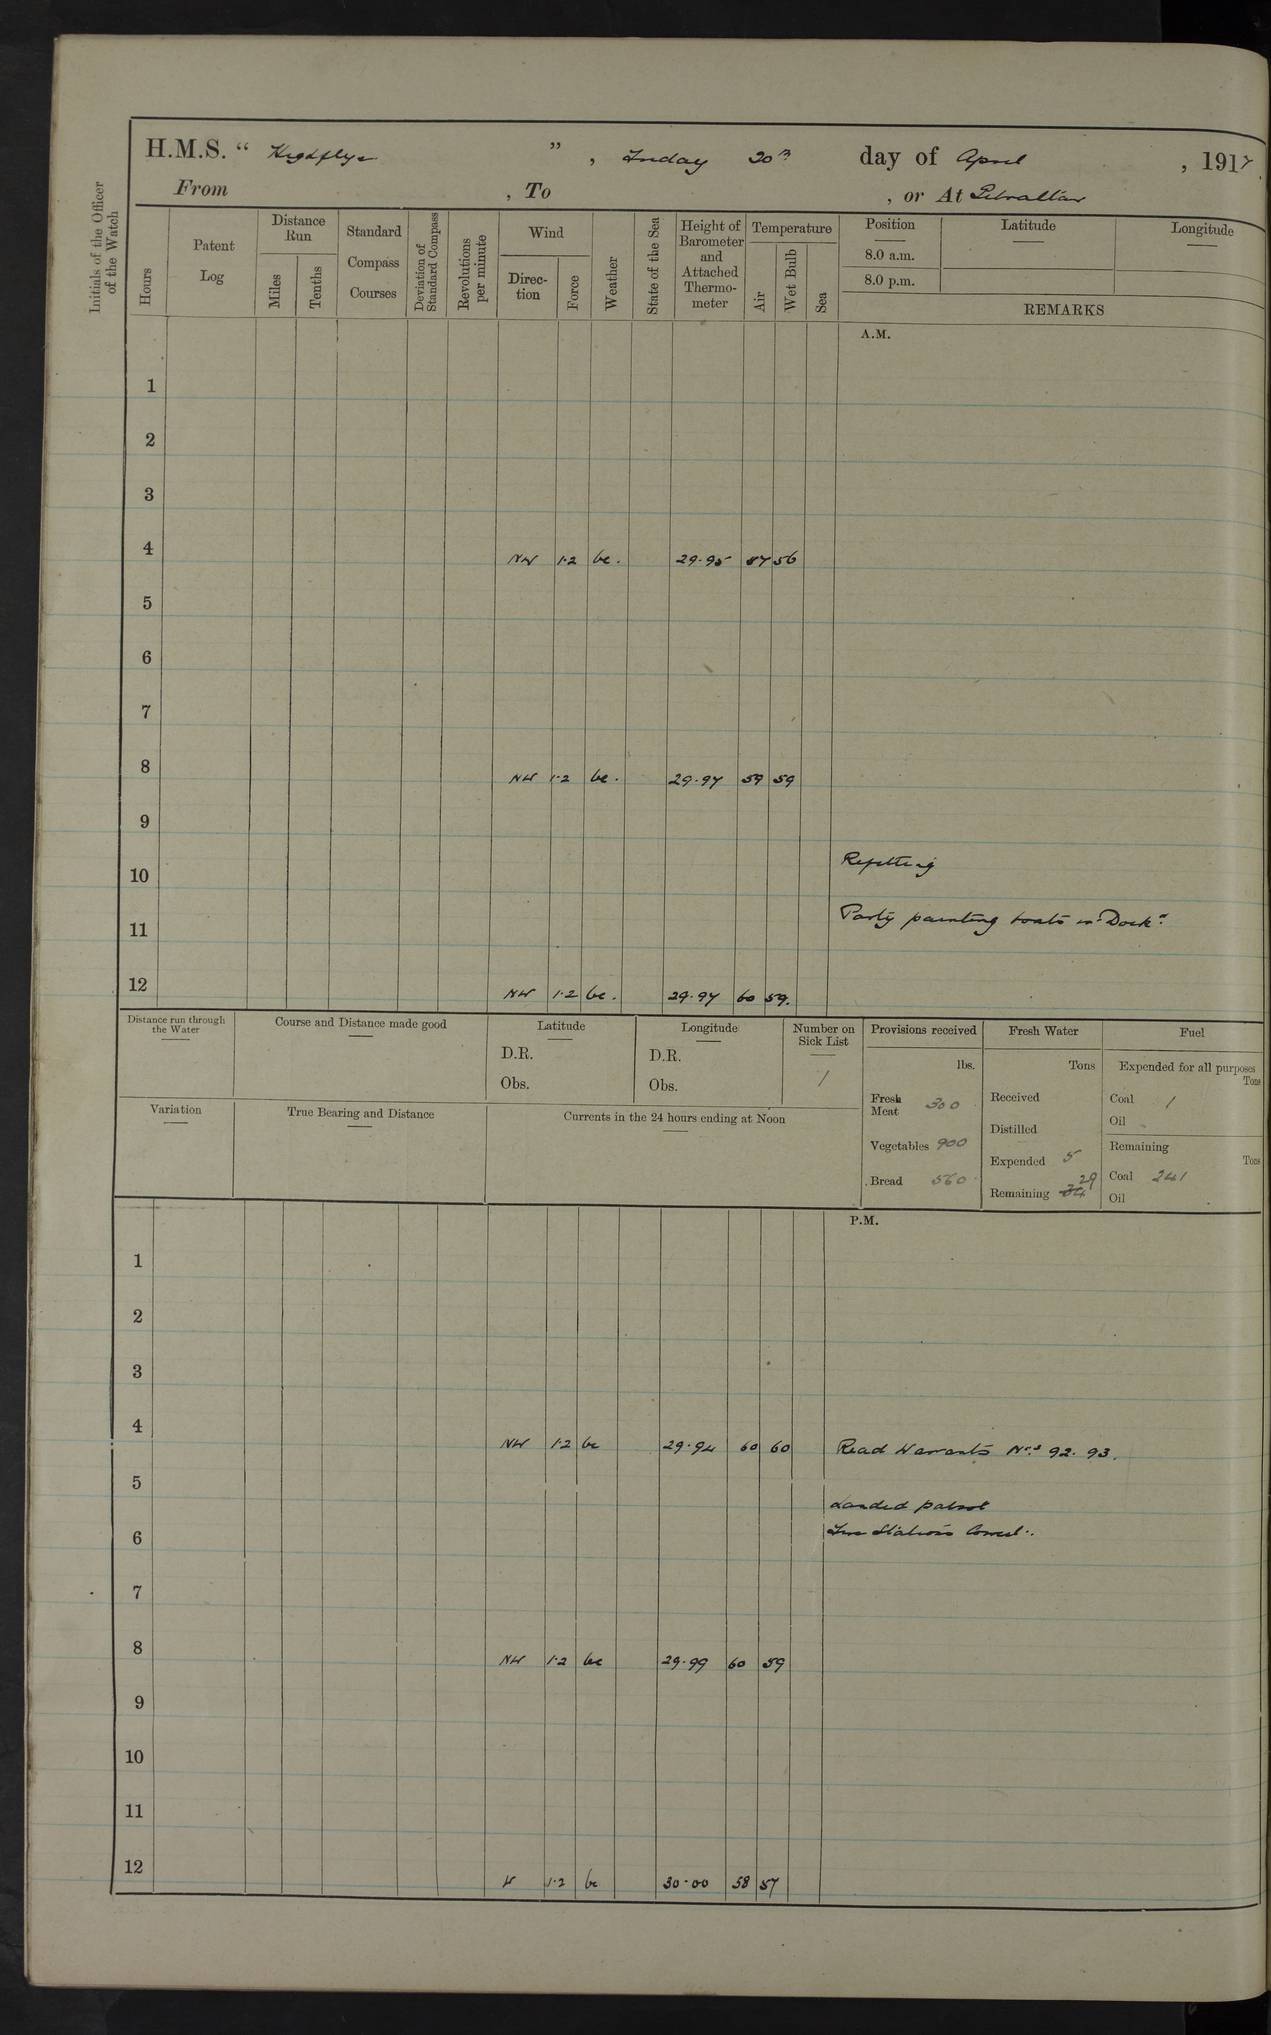 H.M.S. “ Highflyer ” , Friday 20th day of April , 1917.
From , To , or At Gibraltar
Initials of the Officer of the Watch
Hours
Patent Log
Distance Run
Miles
Tenths
Standard Compass Courses
Deviation of Standard Compass
Revolutions per minute
Wind
Direc-tion
Force
Weather
State of the Sea
Height of Barometer and Attached Thermo-meter
Temperature
Air
Wet Bulb
Sea
Position
8.0 a.m.
8.0 p.m.
Latitude
Longitude
REMARKS
A.M.
1
2
3
4 NW 1·2 bc. 29·95 57 56
5
6
7
8 NW 1·2 bc. 29·97 59 59
9
10 Refitting
11 Party painting boats in Dock
12 NW 1·2 bc. 29·97 60 59.
Distance run through the Water
Course and Distance made good
Latitude
D.R.
Obs.
Longitude
D.R.
Obs.
Number on Sick List
1
Variation
True Bearing and Distance
Currents in the 24 hours ending at Noon
Provisions received
lbs.
Fresh Meat 300
Vegetables 900
Bread 560
Fresh Water
Tons
Received
Distilled
Expended 5
Remaining 34 29
Fuel
Expended for all purposes
Tons
Coal 1
Oil
Remaining
Tons
Coal 241
Oil
P.M.
1
2
3
4 NW 1·2 bc 29·94 60 60 Read Warrants Nos 92. 93.
5
Landed patrol
6 Fire Stations
7
8 NW 1·2 bc 29·99 60 59
9
10
11
12 W 1·2 bc 30·00 58 57